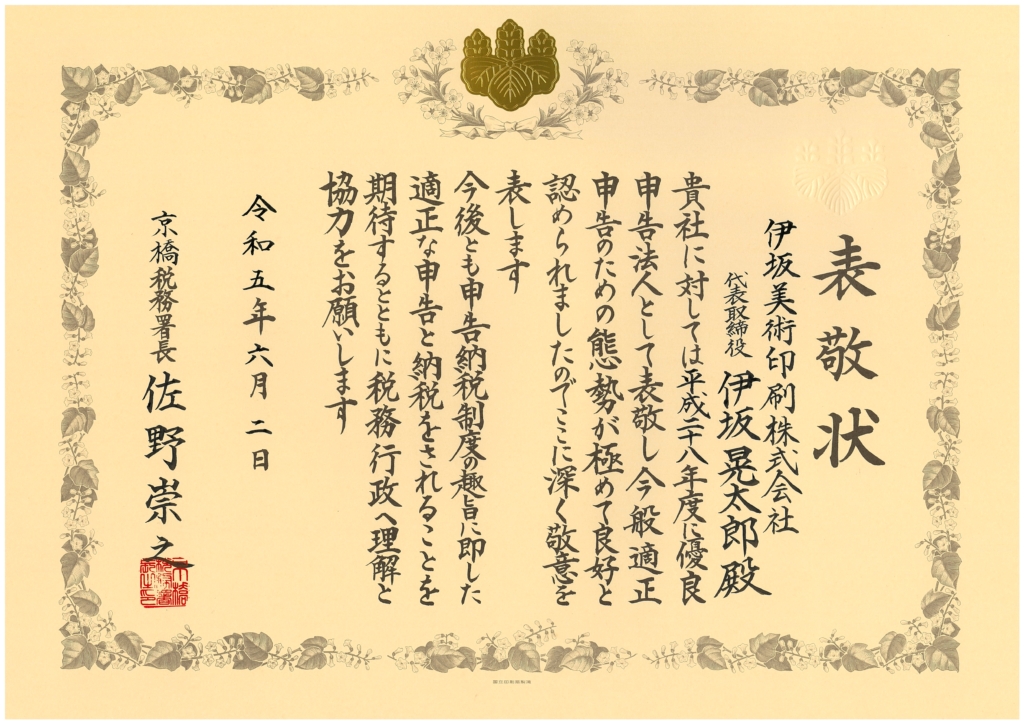 表敬状
伊坂美術印刷株式会社
代表取締役 伊坂晃太郎殿
貴社に対しては平成二十八年度に優良
申告法人として表敬し今般適正
申告のための態勢が極めて良好と
認められましたのでここに深く敬意を
表します
今後とも申告納税制度の趣旨に即した
適正な申告と納税をされることを
期待するとともに税務行政へ理解と
協力をお願いします
令和五年六月二日
京橋税務署長 佐野崇之